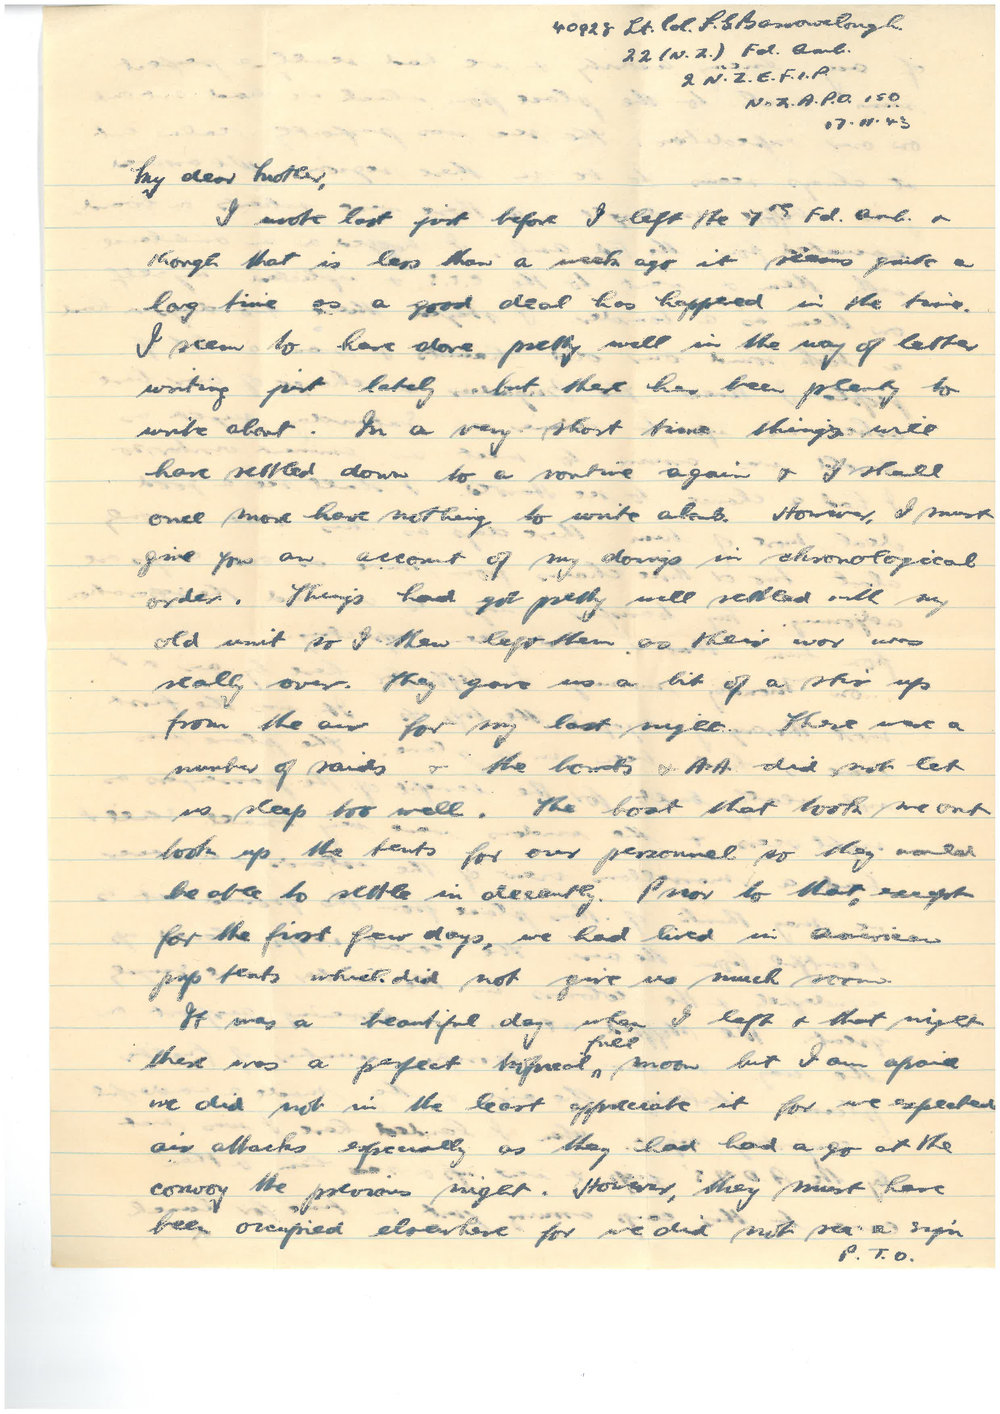 40928 Lt. Col. S. L. Barrowclough.
22 (N.Z.) Fd. Amb.
2 N.Z.E.F.I.P
N.Z.A.P.O. 150
17.11.43
My dear Mother,
I wrote last just before I left the 7th Fd. Amb. &
though that is less than a week ago it seems quite a
long time as a good deal has happened in the time.
I seem to have done pretty well in the way of letter
writing just lately but there has been plenty to
write about. In a very short time things will
have settled down to a routine again & I shall
once more have nothing to write about. However, I must
give you an account of my doings in chronological
order. Things had got pretty well settled with my
old unit so I then left them as their war was
really over. They gave us a bit of a stir up
from the air for my last night. There were a
number of raids & the bombs & A.A. did not let
us sleep too well. The boat that took me out
took up the tents for our personnel so they would
be able to settle in decently. Prior to that, except
for the first few days, we had lived in american
pup tents which did not give us much room.
It was a beautiful day when I left & that night
there was a perfect tropical full moon but I am afraid
we did not in the least appreciate it for we expected
air attacks especially as they had had a go at the
convoy the previous night. However, they must have
been occupied elsewhere for we did not see a sign
P.T.O.